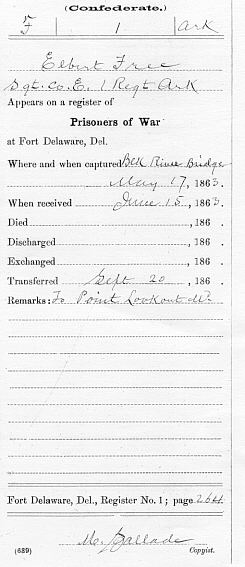 (Confederate.)
F 1 Ark
Elbert Free
Sgt. Co. E. 1 Regt Ark
Appears on a register of
Prisoners of War
at Fort Delaware, Del.
Where and when captured Blk River Bridge
May 17, 1863.
When received June 15, 1863.
Died , 186 .
Discharged , 186 .
Exchanged , 186 .
Transferred Sept 20 , 186 .
Remarks: To Point Lookout Md.
Fort Delaware, Del., Register No. 1; page 264
M. Ballade
(689) Copyist.